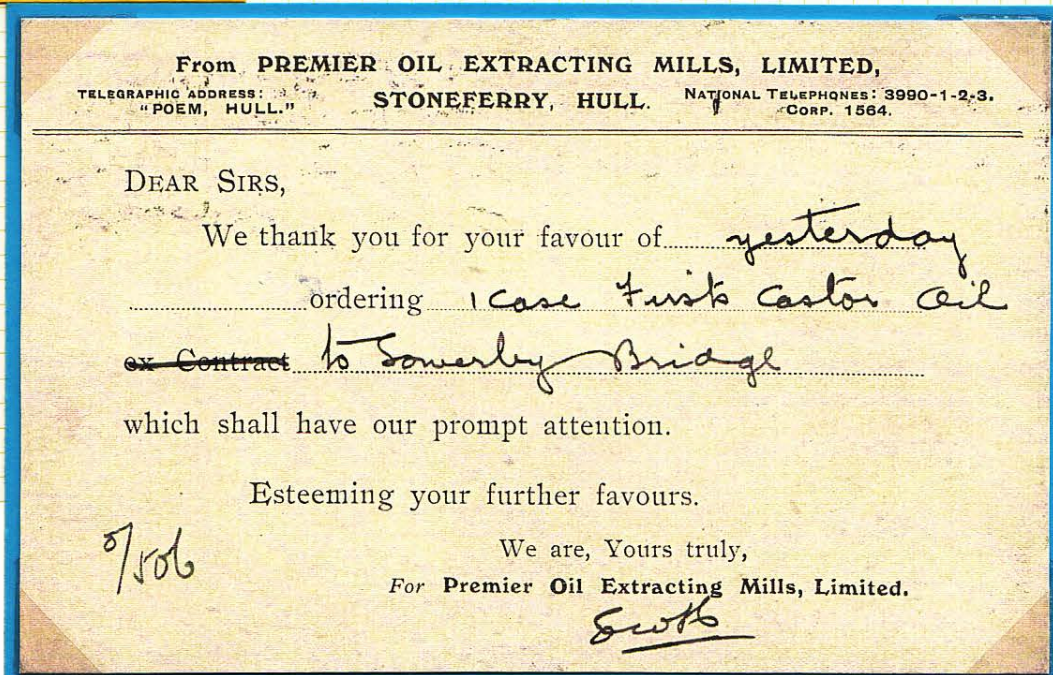 From PREMIER OIL EXTRACTING MILLS, LIMITED,
TELEGRAPHIC ADDRESS:
"POEM, HULL."
STONEFERRY, HULL.
NATIONAL TELEPHONES: 3990-1-2-3.
CORP. 1564.
DEAR SIRS,
We thank you for your favour of yesterday
ordering 1 case Firsts Castor Oil
ex Contract to Sowerby Bridge
which shall have our prompt attention.
Esteeming your further favours.
We are, Yours truly,
For Premier Oil Extracting Mills, Limited.